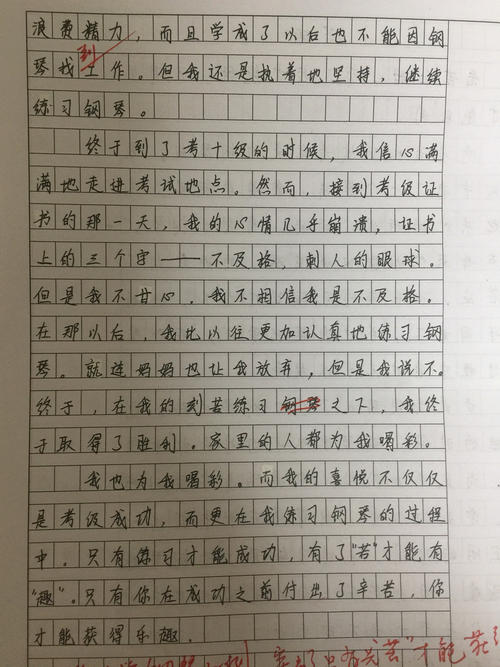 浪费精力,而且学成了以后也不能因钢
到
琴找工作。但我还是执着地坚持,继续
练习钢琴。
终于到了考十级的时候,我信心满
满地走进考试地点。然而,接到考级证
书的那一天,我的心情几乎崩溃,证书
上的三个字——不及格,刺人的眼球。
但是我不甘心,我不相信我是不及格。
在那以后,我比以往更加认真地练习钢
琴。就连妈妈也让我放弃,但是我说不。
终于,在我的刻苦练习钢琴之下,我终
于取得了胜利。家里的人都为我喝彩。
我也为我喝彩。而我的喜悦不仅仅
是考级成功,而更在我练习钢琴的过程
中。只有练习才能成功,有了"苦"才能有
"趣"。只有你在成功之前付出了辛苦,你
才能获得乐趣。
"才能获